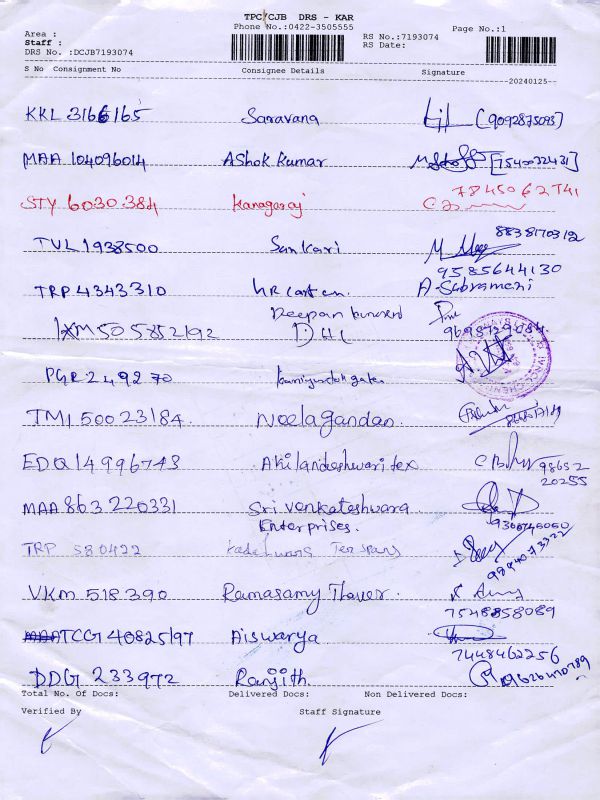 TPC/CJB DRS - KAR
Phone No.:0422-3505555
Page No.:1
Area :
Staff :
RS No.:7193074
DRS No. :DCJB7193074
RS Date:
S No Consignment No Consignee Details Signature
20240125
KKL 3166165 Saravana [9092875093]
MAA 104096014 Ashok Kumar [7540032431]
STY 6030384 Kanagaraj 7845062741
TVL 1938500 Sankari 8838170312
9585644130
TRP 4343310 A-Subramani
Deepan
IXM 505852192 DHL 9698729084
PGR 249270
TMI 50023184 Neelagandan
EDQ 14996743 Akilandeshwari tex 98652
20255
MAA 863220331 Sri Venkateshwara
Enterprises. 9300746060
TRP 580422 9994073322
VKM 518390 Ramasamy Thever
7548858089
TCG 40825197 Aiswarya
7448462256
DDG 233972 Ranjith
Total No. Of Docs: Delivered Docs: Non Delivered Docs:
Verified By Staff Signature